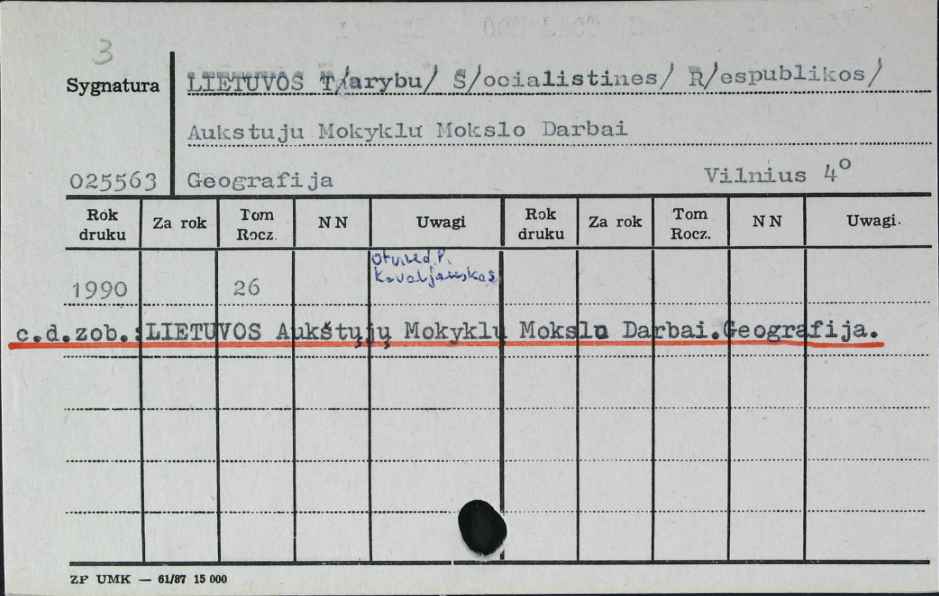 3
Sygnatura LIETUVOS T/arybu/ S/ocialistines/ R/espublikos/
Aukstuju Mokyklu Mokslo Darbai
025563 Geografija Vilnius 4°
Rok druku Za rok Tom Rocz. N N Uwagi Rok druku Za rok Tom Rocz. N N Uwagi.
1990 26 Kovaljauskas
c.d.zob.:LIETUVOS Aukštųjų Mokyklų Mokslo Darbai.Geografija.
ZP UMK — 61/87 15 000